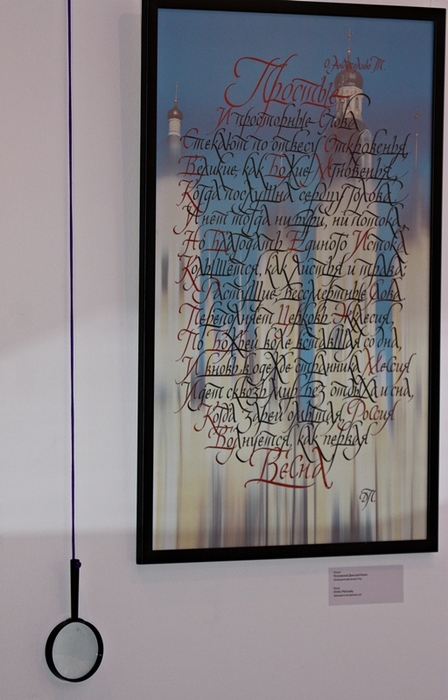 Простые
И просторные слова
Стекают по отвесу Откровенья,
Великие, как Божие Мгновенья,
Когда послушна сердцу голова,
И нет тогда ни бури, ни потока,
Но благодать Единого Истока
Колышется, как листья и трава;
Растущие, бессмертные слова
Переполняет Церковь
По Божьей воле вставшая со дна,
И вновь в одежде странника Мессия
Идет сквозь мир без отдыха и сна,
Когда Зарей омытая, Россия
Волнуется, как первая
Весна